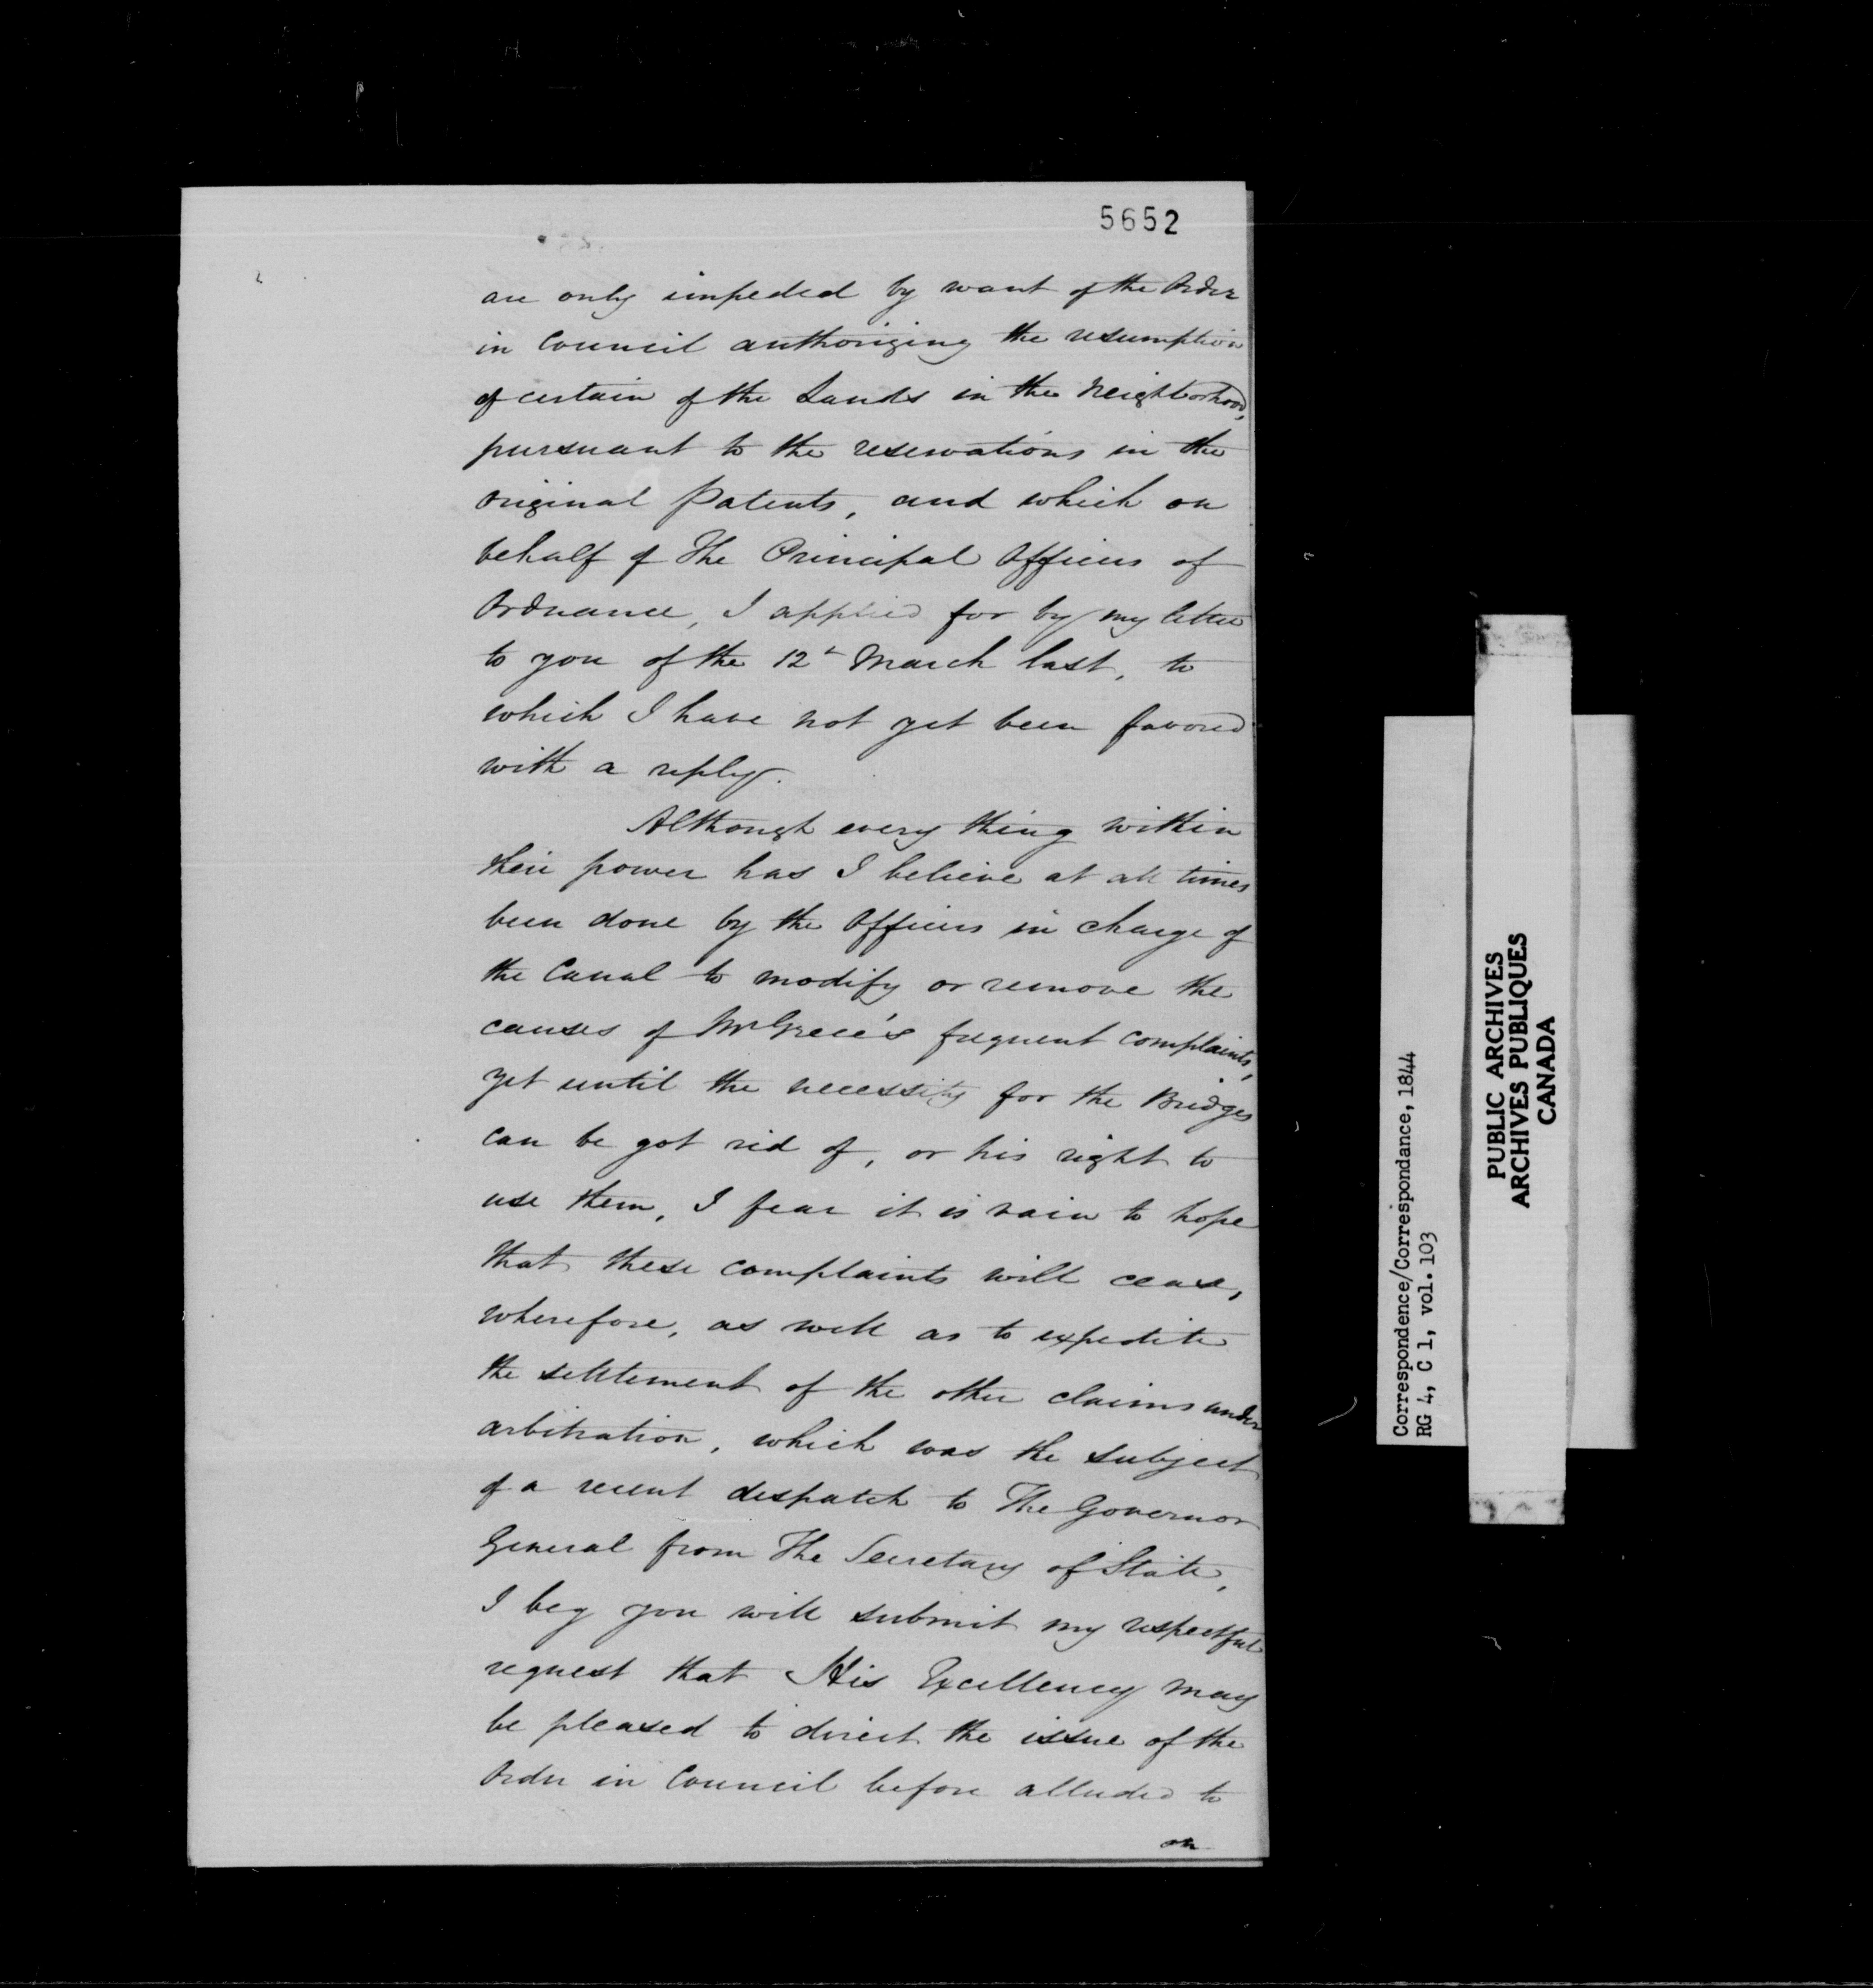 5652
are only impeded by want of the Order
in Council authorizing the resumption
of certain of the Lands in the Neighborhood,
pursuant to the reservations in the
original Patents, and which on
behalf of The Principal Officers of
Ordnance, I applied for by my letter
to you of the 12th March last, to
which I have not yet been favored
with a reply.
Although every thing within
their power has I believe at all times
been done by the Officers in charge of
the Canal to modify or remove the
causes of Mr Grece's frequent complaints,
yet until the necessity for the Bridges
can be got rid of, or his right to
use them, I fear it is vain to hope
that these complaints will cease,
wherefore, as well as to expedite
the settlement of the other claims under
arbitration, which was the subject
of a recent despatch to The Governor
General from The Secretary of State,
I beg you will submit my respectful
request that His Excellency may
be pleased to direct the issue of the
Order in Council before alluded to
on
Correspondence/Correspondance, 1844
RG 4, C 1, vol. 103
PUBLIC ARCHIVES
ARCHIVES PUBLIQUES
CANADA